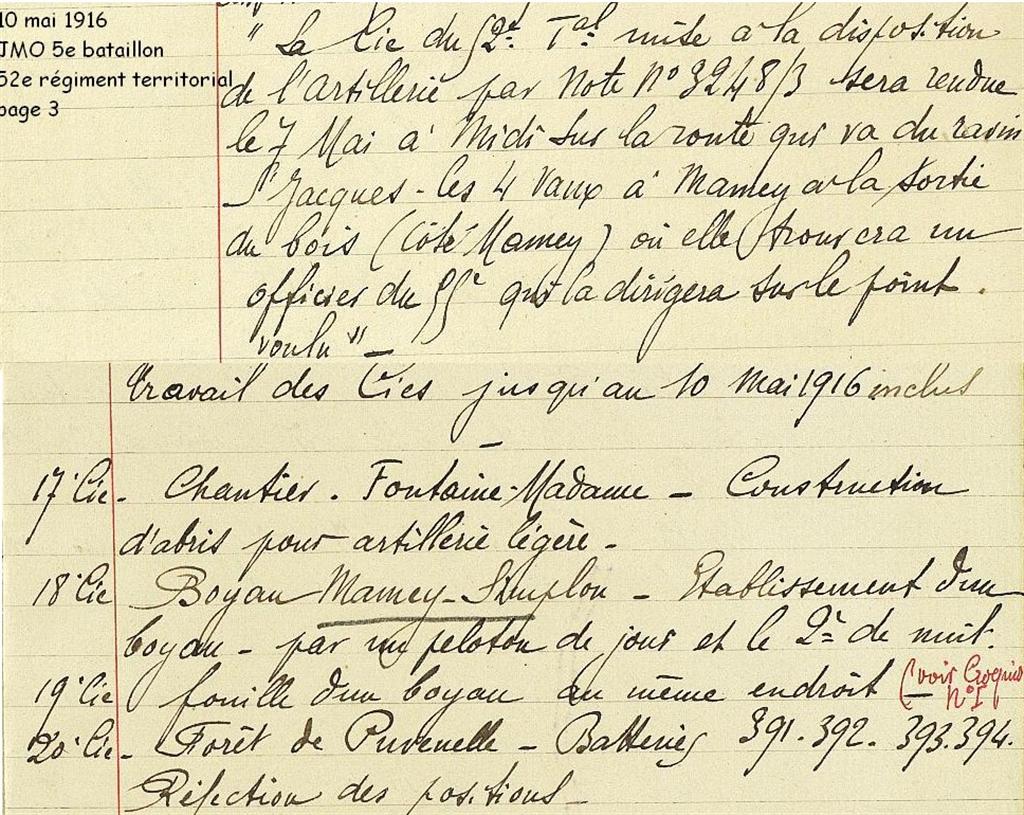 10 mai 1916
JMO 5e bataillon
52e régiment territorial
page 3
" La Cie du 52e Tal mise à la disposition
de l'artillerie par Note No 3248/3 sera rendue
le 7 Mai à Midi sur la route qui va du ravin
St Jacques - les 4 Vaux à Mamey à la sortie
du bois (côté Mamey) où elle trouvera un
officier du qui la dirigera sur le point
voulu " —
Travail des Cies jusqu'au 10 Mai 1916 inclus
—
17e Cie - Chantier. Fontaine-Madame - Construction
d'abris pour artillerie légère -
18e Cie Boyau Mamey-Simplon - Etablissement d'un
boyau - par un peloton de jour et le 2e de nuit.
19e Cie fouille d'un boyau au même endroit (voir Croquis
No I
20e Cie - Forêt de Puvenelle - Batteries 391. 392. 393. 394.
Réfection des positions -